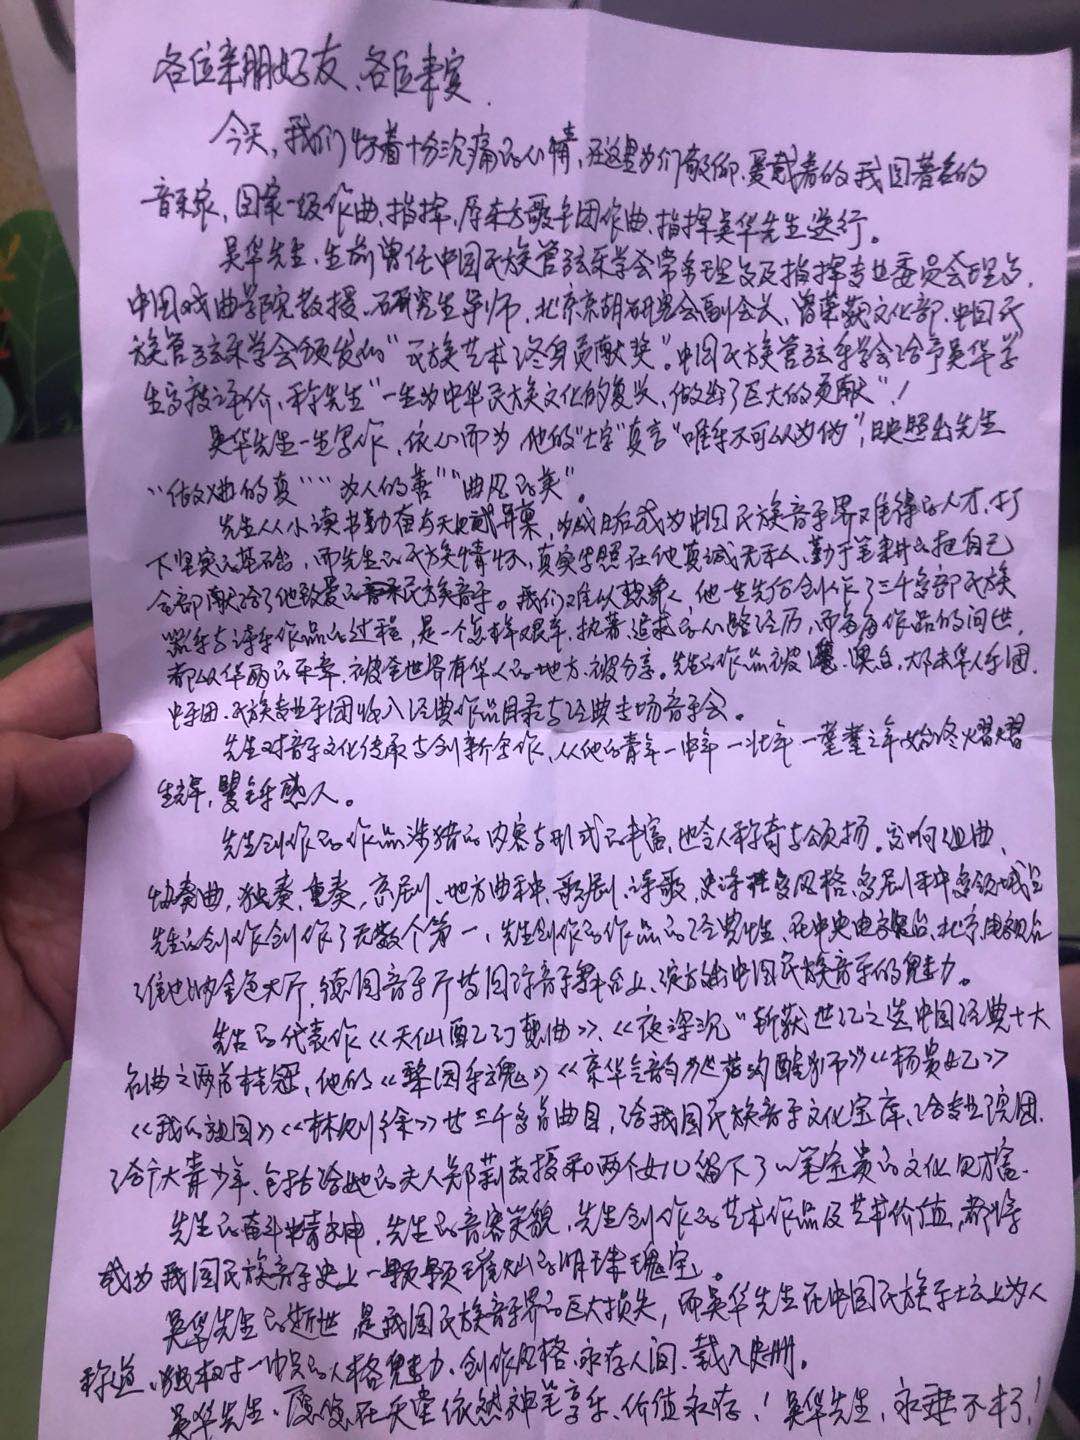 各位亲朋好友、各位来宾、
今天,我们怀着十分沉痛的心情,在这里为们敬仰、爱戴着的我国著名的
音乐家,国家一级作曲、指挥,原东方歌午团作曲、指挥吴华先生送行。
吴华先生、生前曾任中国民族管弦乐学会常务理事及指挥专业委员会理事,
中国戏曲学院教授、研究生导师,北京京胡研究会副会长、曾荣获文化部、中国民
族管弦乐学会颁发的"民族艺术终身贡献奖"。中国民族管弦乐学会给予吴华学
生高度评价、称先生"一生为中华民族文化的复兴、做出了巨大的贡献"!
吴华先生一生写作、依心而为 他的"七字"真言"唯乐不可以为伪",映照出先生
"做曲的真""为人的善""曲风的美"。
先生从小读书勤奋与天赋异禀,为成日后成为中国民族音乐界难得的人才、打
下坚实的基础,而先生的民族情怀,真实写照在他真诚无私、勤于笔耕的把自己
全部献给了他致爱的民族音乐。我们难以想象、他一生先后创作了三千多部民族
器乐与译乐作品的过程,是一个怎样艰辛、执着追求的心路经历,而每每作品的问世,
都以华丽的乐章、被全世界有华人的地方、被分享。先生的作品被港、澳台、大部来华人乐团、
中乐团、民族专业乐团收入经典作品目录与经典专场音乐会。
先生对音乐文化传承与创新全作、从他的青年一中年一壮年一耄耋之年始终熠熠
生辉,矍铄感人。
先生创作的作品涉猎的内容与形式的丰富、也令人称奇与颂扬。交响组曲、
协奏曲,独奏,重奏,京剧、地方曲种、歌剧、诗歌、史诗 风格、多剧种多领域
先生的创作创作了无数个第一、先生创作的作品的经典性、在中央电视台、北京电视台
维也纳金色大厅,德国音乐厅等国际音乐舞台上、演放出中国民族音乐的魅力。
先生的代表作《天仙配幻想曲》、《夜深沉"斩获世纪之选中国经典十大
名曲之两首桂冠,他的《梨园乐魂》《京华气韵》《 的酿师》《杨贵妃》
《我的祖国》《林则徐》等三千多首曲目,给我国民族音乐文化宝库、给专业院团、
给广大青少年、包括给她的夫人郑莉教授和两个女儿留下了一笔宝贵的文化财富。
先生的奋斗精神,先生的音容笑貌,先生创作的艺术作品及艺术价值,都将
成为我国民族音乐史上一颗颗璀灿的明珠瑰宝。
吴华先生的逝世,是我国民族音乐界的巨大损失,而吴华先生在中国民族乐坛上为人
称道、独树一帜的人格魅力、创作风格、永存人间、载入史册。
吴华先生、愿您在天堂依然神笔享乐、价值永存!吴华先生、永垂不朽!